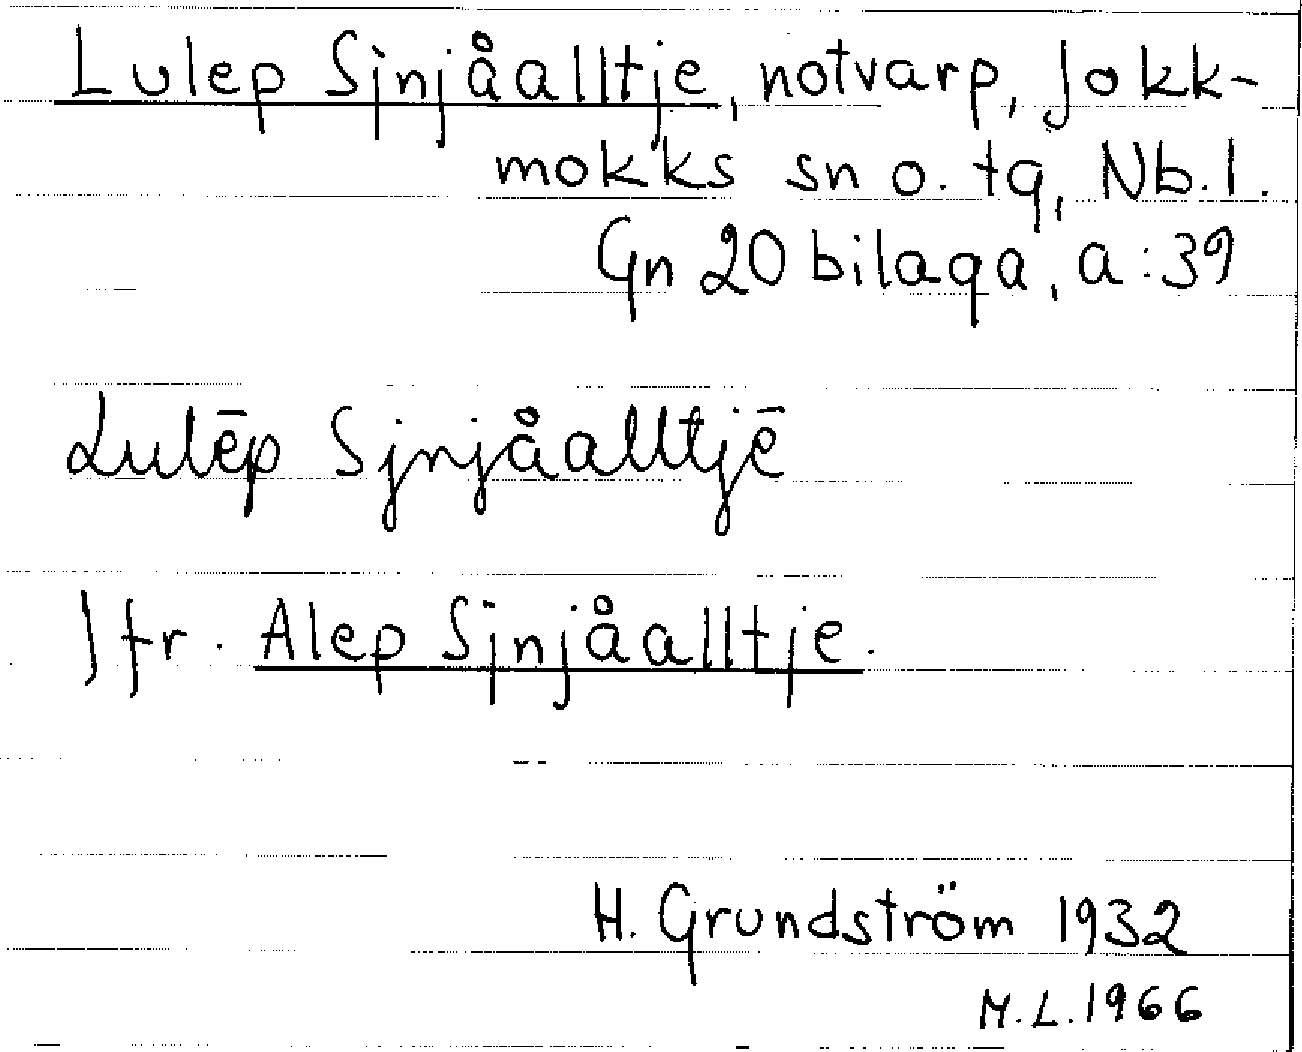 Lulep Sjnjåalltje, notvarp, Jokk-
mokks sn o. tg, Nb. l.
Gn 20 bilaga, a:39
Lulēp Sjnjåalltjē
Jfr. Alep Sjnjåalltje.
H. Grundström 1932
M.L. 1966